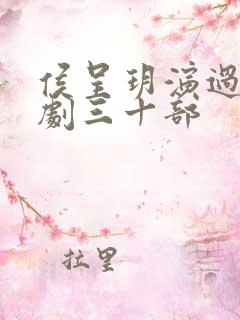 侯呈玥演過
劇三十部
拉里